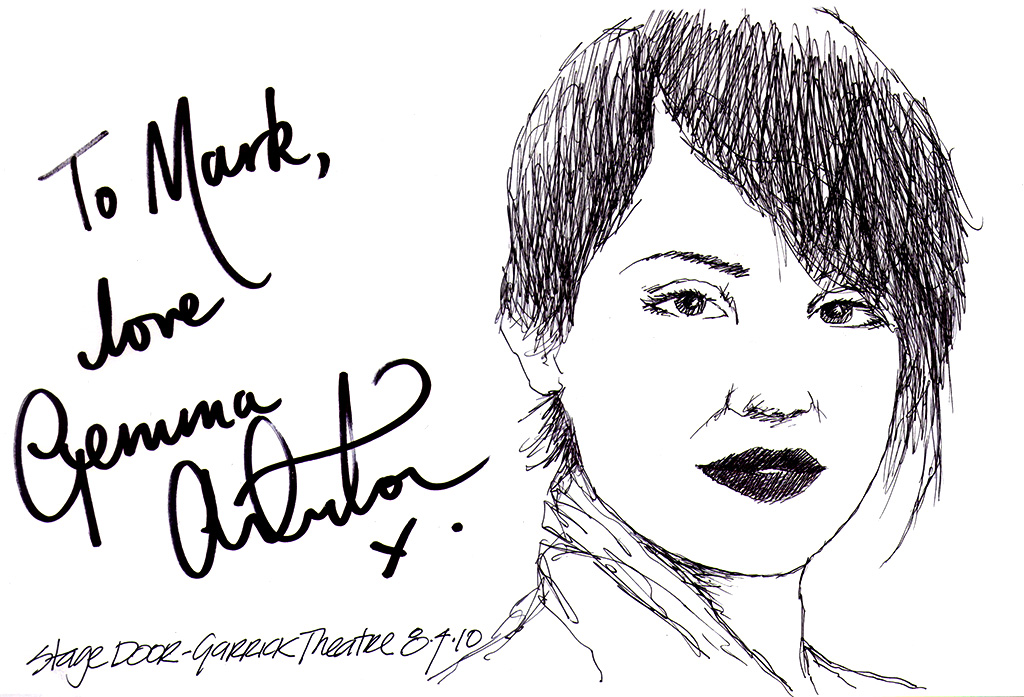 To Mark,
love
Gemma
Arterton
x.
Stage Door - Garrick Theatre 8.4.10